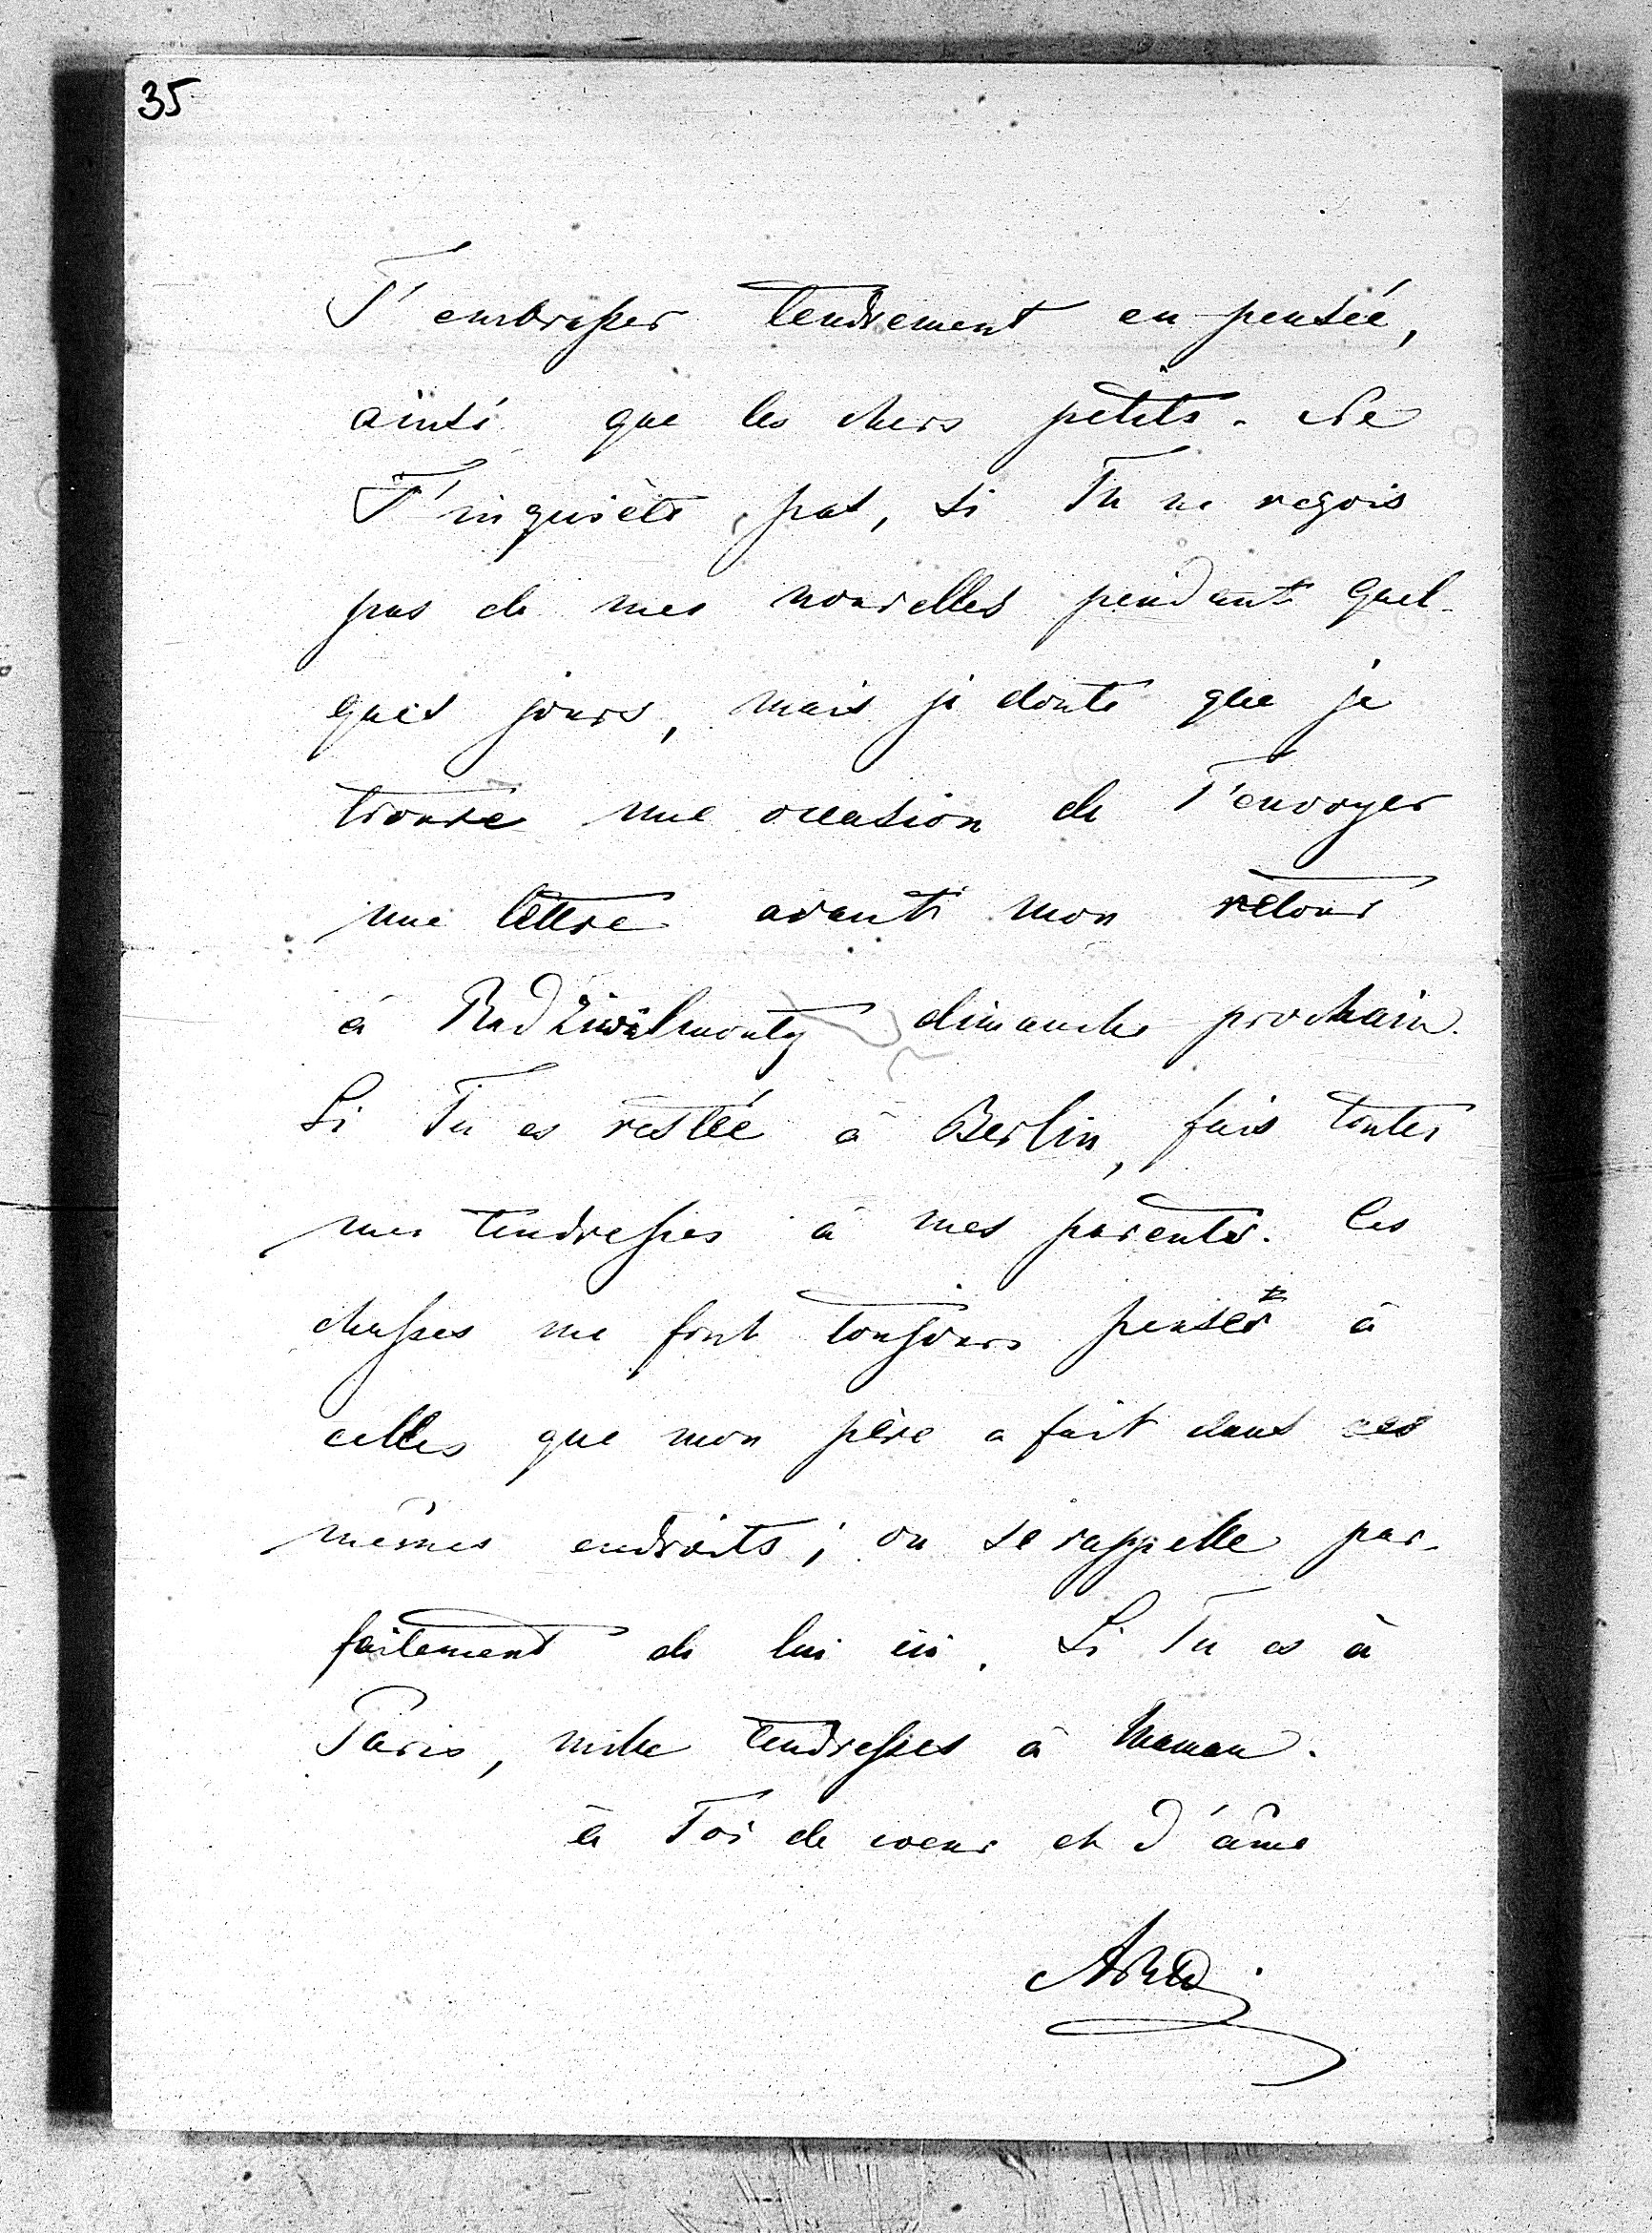 35
T'embrasser tendrement en pensée,
ainsi que les chers petits. Ne
T'inquiète pas, si Tu ne reçois
pas de mes nouvelles pendant quel-
ques jours, mais je doute que je
trouve une occasion de T'envoyer
une lettre avant mon retour
à Radziwilmonty dimanche prochain.
Si Tu es restée à Berlin, fais toutes
mes tendresses à mes parents. Ces
chasses me font toujours penser à
celles que mon père a fait dans ces
mêmes endroits; on se rappelle par-
faitement de lui ici. Si Tu es à
Paris, mille tendresses à Maman.
à Toi de coeur et d'âme